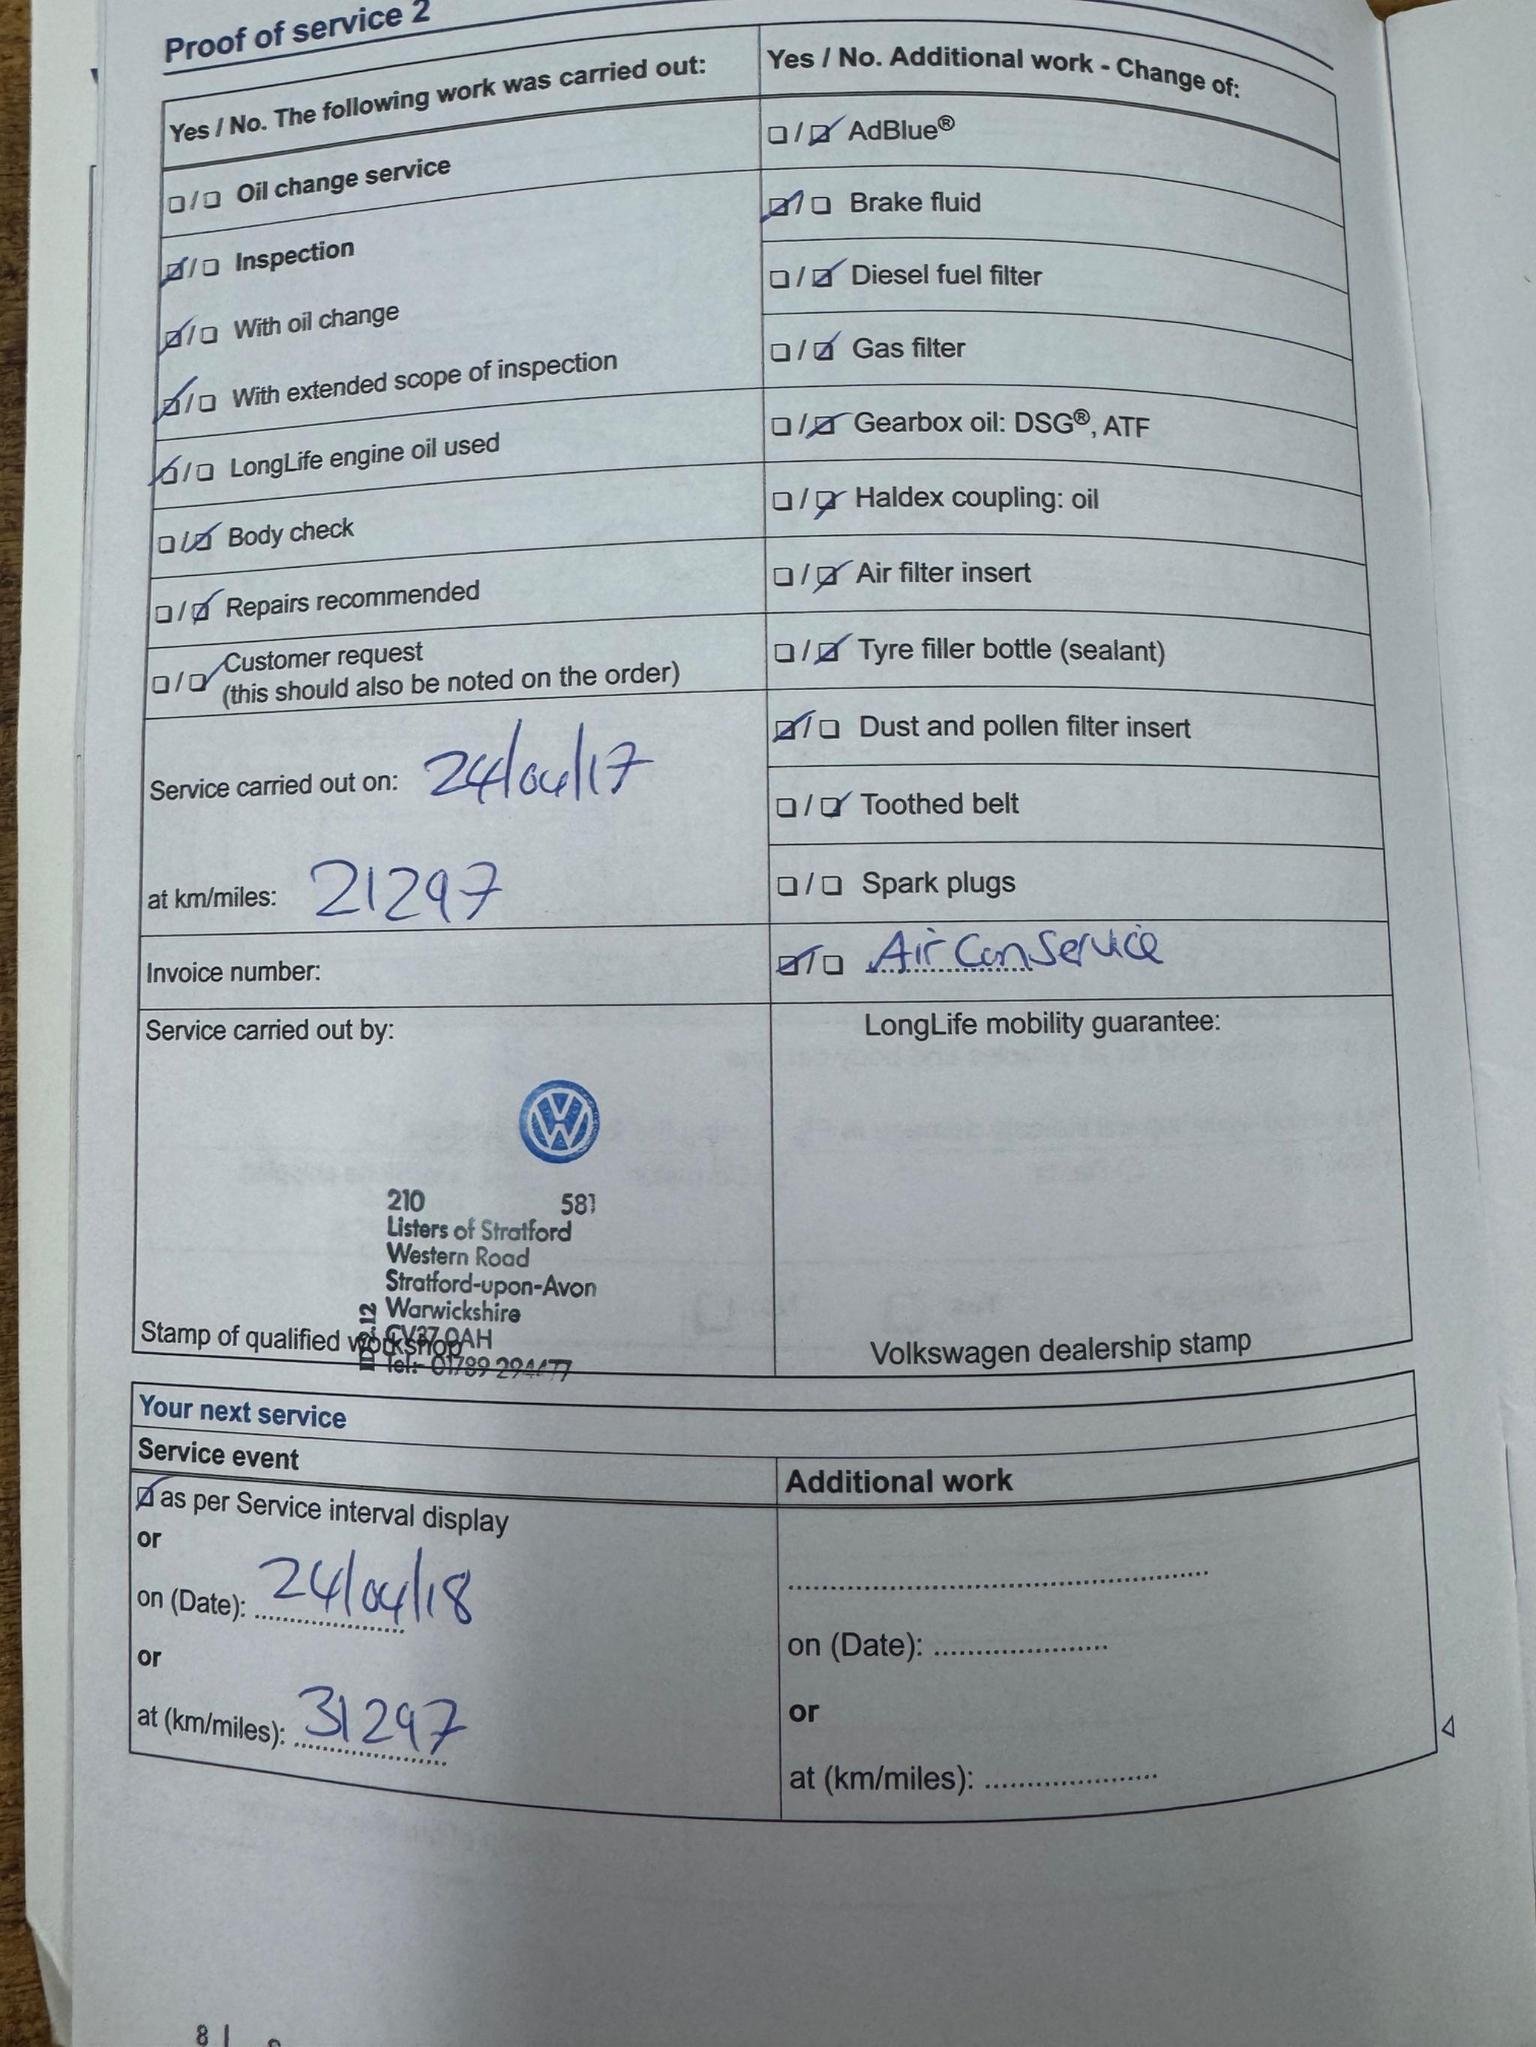 Proof of service 2
Yes / No. The following work was carried out:
❏ / ❏ Oil change service
☑ / ❏ Inspection
☑ / ❏ With oil change
☑ / ❏ With extended scope of inspection
☑ / ❏ LongLife engine oil used
❏ / ☑ Body check
❏ / ☑ Repairs recommended
❏ / ☑ Customer request
(this should also be noted on the order)
Service carried out on: 24/04/17
at km/miles: 21297
Invoice number:
Yes / No. Additional work - Change of:
❏ / ☑ AdBlue®
☑ / ❏ Brake fluid
❏ / ☑ Diesel fuel filter
❏ / ☑ Gas filter
❏ / ☑ Gearbox oil: DSG®, ATF
❏ / ☑ Haldex coupling: oil
❏ / ☑ Air filter insert
❏ / ☑ Tyre filler bottle (sealant)
☑ / ❏ Dust and pollen filter insert
❏ / ☑ Toothed belt
❏ / ❏ Spark plugs
☑ / ❏ Air Con Service
Service carried out by:
VW
210 581
Listers of Stratford
Western Road
Stratford-upon-Avon
Warwickshire
CV37 0AH
Tel:-
Stamp of qualified workshop
LongLife mobility guarantee:
Volkswagen dealership stamp
Your next service
Service event
☑ as per Service interval display
or
on (Date): 24/04/18
or
at (km/miles): 31297
Additional work
on (Date):
or
at (km/miles):
8